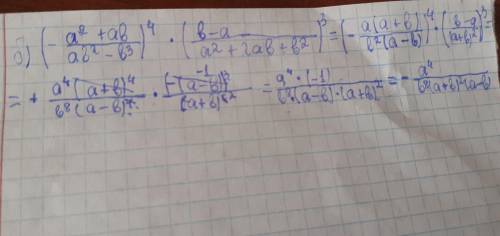 б) (- a² + ab / ab² - b³)⁴ · (b - a / a² + 2ab + b²)³ = (- a(a+b) / b²(a-b))⁴ · (b-a / (a+b)²)³ =
= + a⁴(a+b)⁴ / b⁸(a-b)⁴ · (-(a-b))³ / (a+b)⁶ ² = a⁴·(-1) / b⁸·(a-b)·(a+b)² = - a⁴ / b⁸(a+b)²(a-b)